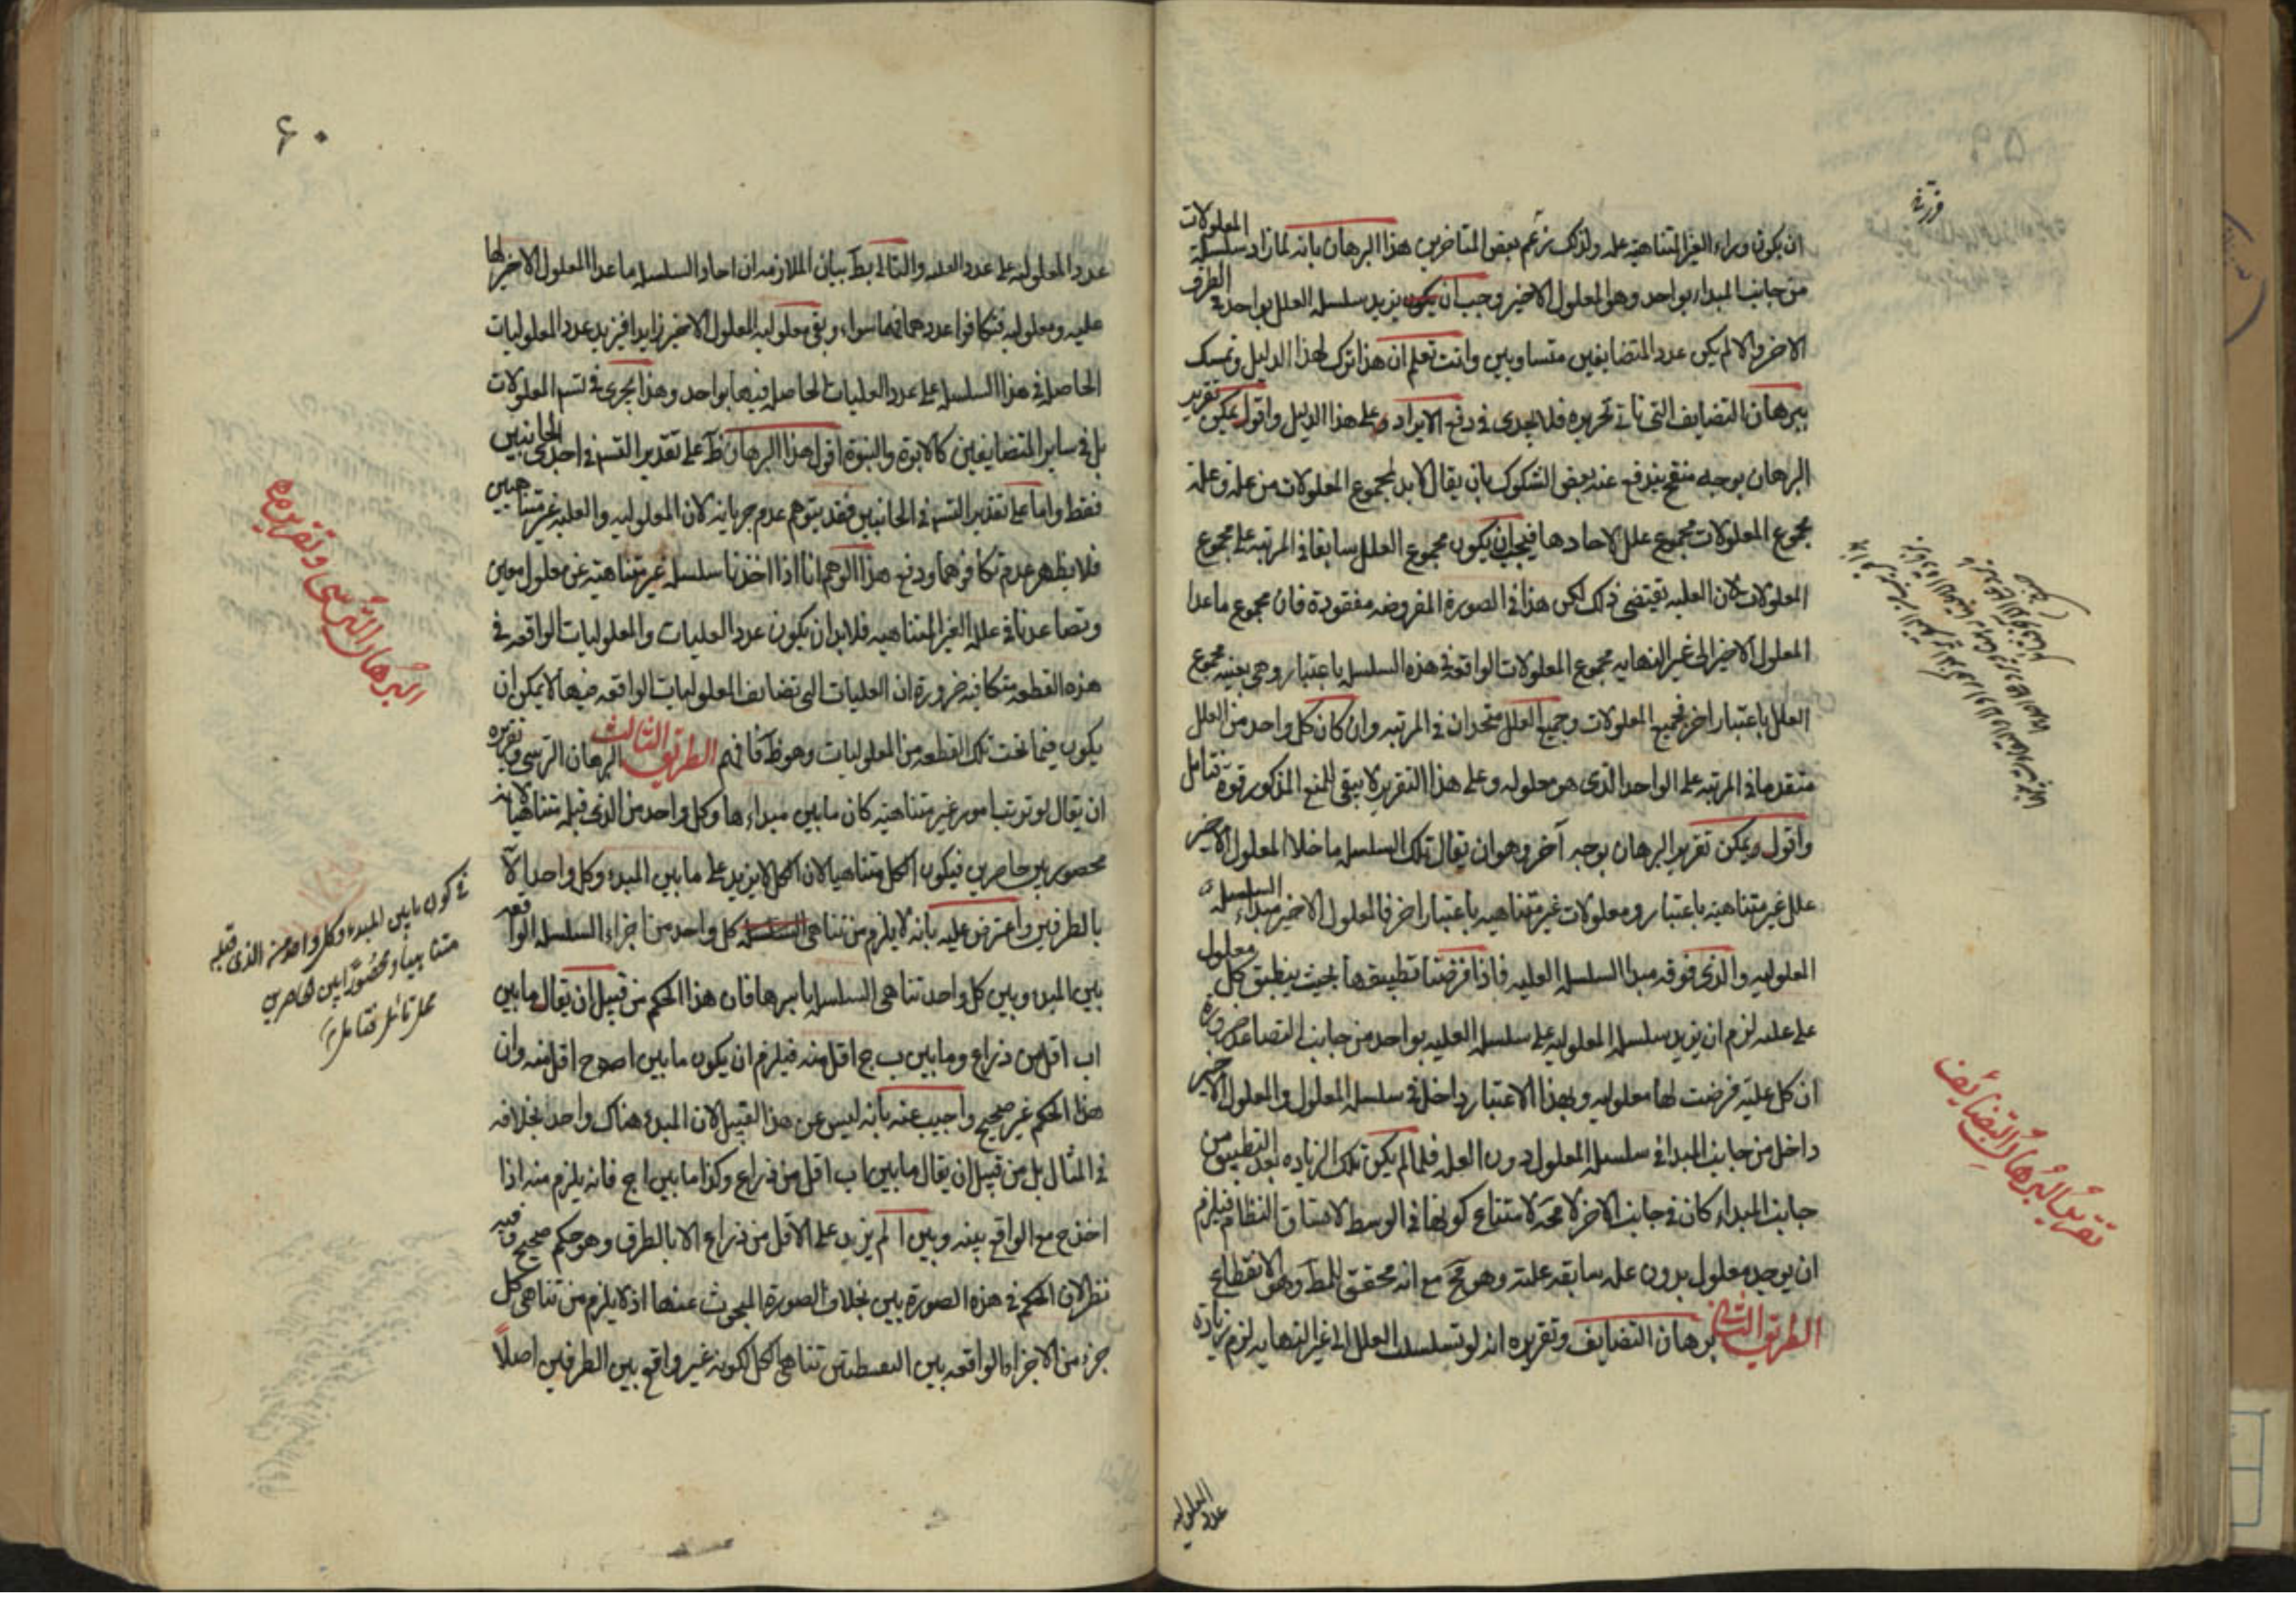 ان يكون وراء الغير المتناهية علة ولذلك زعم بعض المتأخرين هذا البرهان بانه لما زاد سلسلة المعلولات
من جانب المبداء بواحد وهو المعلول الاخير وجب ان يزيد سلسلة العلل بواحد في الطرف
الاخر والا لم يكن عدد المتضايفين متساويين وانت تعلم ان هذا ترك لهذا الدليل وتمسك
ببرهان التضايف التي ناتي تحريره فلا يجدي في دفع الايراد على هذا الدليل واقول يمكن تقرير
البرهان بوجه منقح يندفع عنه بعض الشكوك بان يقال لابد لمجموع المعلولات من علة وعلة
مجموع المعلولات مجموع علل الاحادها فيجب ان يكون مجموع العلل سابقا في المرتبة على مجموع
المعلولات لان العلية تقتضي ذلك لكن هذا في الصورة المفروضه مفقودة فان مجموع ماعدا
المعلول الاخير الى غير النهايه مجموع المعلولات الواقعة في هذه السلسلة باعتبار وهي بعينه مجموع
العلل باعتبار اخر فجميع المعلولات وجميع العلل متحدان في المرتبه وان كان كل واحد من العلل
متقدما في المرتبة على الواحد الذي هو معلوله وعلى هذا التقرير لا يبقى للمنع المذكور قوة فتامل
واقول ويمكن تقرير البرهان بوجه آخر وهو ان يقال تلك السلسله ماخلا المعلول الاخير
علل غير متناهية باعتبار ومعلولات غير متناهيه باعتبار اخر فالمعلول الاخير مبداء السلسلة
المعلوليه والذي فوقه مبدا السلسلة العليه فاذا فرضنا تطبيقها بحيث ينطبق كل معلول
على علته لزم ان يزيد سلسلة المعلوليه على سلسلة العليه بواحد من جانب التصاعد ضرورة
ان كل علية فرضت لها معلوليه وبهذا الاعتبار داخل في سلسلة المعلول والمعلول الاخير
داخل من جانب المبدا في سلسلة المعلول دون العلة فلما لم يكن تلك الزياده بعد التطبيق من
جانب المبداء كان في جانب الاخر لا محة لامتناع كونها في الوسط لاتساق النظام فيلزم
ان يوجد معلول بدون علة سابقه عليه وهو مح مع انه محقق للمط وهو الانقطاع
الطريق الثاني برهان التضايف وتقريره انه لو تسلسلت العلل الى غير النهايه لزم زيادة
تقرير البرهان التضايف
عدد المعلوليه
۶۰
عدد المعلوليه على عدد العليه والتالي بط بيان الملازمه ان احاد السلسله ماعدا المعلول الاخير لها
عليه ومعلوليه فتكافوا عددهما فيما سواه وبقي معلوليه المعلول الاخير زايدا فيزيد عدد المعلوليات
الحاصل في هذا السلسله على عدد العليات الحاصل فيها بواحد وهذا يجري في تسلسل المعلولات
بل في ساير المتضايفين كالابوة والبنوة اقول هذا البرهان ظ على تقدير التسلسل في احدى الجانبين
فقط واما على تقدير التسلسل في الجانبين فقد يتوهم عدم جريانه لان المعلوليه والعليه غير متناهيين
فلا يظهر عدم تكافوهما ودفع هذا الوهم انا اذا اخذنا سلسلة غير متناهية عن معلول معين
وتصاعدنا في علله الغير المتناهيه فلابد ان يكون عدد العليات والمعلوليات الواقعه في
هذه القطعه متكافيه ضرورة ان العليات التي تضايف المعلوليات الواقعه فيها لا يمكن ان
يكون فيما تحت تلك القطعه من المعلوليات وهو ظ فافهم الطريق الثالث البرهان الترسي وتقريره
ان يقال لو ترتب امور غير متناهية كان ما بين مبداءها وكل واحد من الذي قبله متناهيا لانه
محصور بين حاصرين فيكون الكل متناهيا لان الكل لا يزيد على ما بين المبدء وكل واحد الا
بالطرفين واعترض عليه بانه لا يلزم من تناهي كل واحد من اجزاء السلسلة الواقعه
بين المبدء وبين كل واحد تناهي السلسله باسرها فان هذا الحكم من قبيل ان يقال ما بين
اب اقل من ذراع وما بين ب ج اقل منه فيلزم ان يكون ما بين ا وج اقل منه وان
هذا الحكم غير صحيح واجيب عنه بانه ليس عن هذا القبيل لان المبدء هناك واحد بخلافه
في المثال بل من قبيل ان يقال ما بين اب اقل من ذراع وكذا ما بين اج فانه يلزم منه اذا
اخذ ج مع الواقع بينه وبين ا لم يزيد على الاقل من ذراع الا بالطرف وهو حكم صحيح وفيه
نظر لان الحكم في هذه الصورة بين بخلاف الصورة المبحوث عنها اذ لا يلزم من تناهي كل
جزء من الاجزاء الواقعه بين النقطتين تناهي الكل لكونه غير واقع بين الطرفين اصلا
البرهان الترسي وتقريره
في كون ما بين المبدء وكل واحد من الذي قبله
متناهيا ومحصورا بين حاصرين
محل تامل فتامل